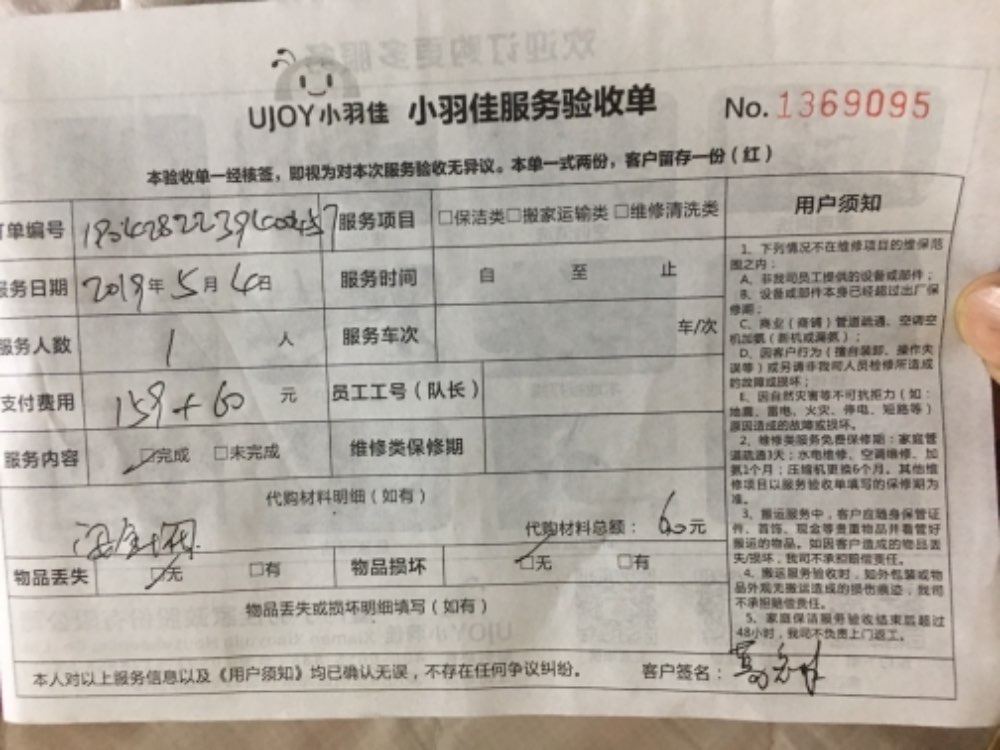 UJOY小羽佳 小羽佳服务验收单 No.1369095
本验收单一经核签，即视为对本次服务验收无异议。本单一式两份，客户留存一份（红）
订单编号 服务项目 □保洁类□搬家运输类□维修清洗类
服务日期 2019年5月4日 服务时间 自 至 止
服务人数 1 人 服务车次 车/次
支付费用 159+60 元 员工工号（队长）
服务内容 □完成 □未完成 维修类保修期
代购材料明细（如有）
代购材料总额：60元
物品丢失 □无 □有 物品损坏 □无 □有
物品丢失或损坏明细填写（如有）
本人对以上服务信息以及《用户须知》均已确认无误，不存在任何争议纠纷。 客户签名：
用户须知
1、下列情况不在维修项目的维保范
围之内：
A、非我司员工提供的设备或部件；
B、设备或部件本身已经超过出厂保
修期；
C、商业（商铺）管道疏通、空调空
机加氨（新机或漏氨）；
D、因客户行为（擅自装卸、操作失
误等）或另请非我司人员检修所造成
的故障或损坏；
E、因自然灾害等不可抗拒力（如：
地震、雷电、火灾、停电、短路等）
原因造成的故障或损坏。
2、维修类服务免费保修期：家庭管
道疏通3天；水电维修、空调维修、加
氨1个月；压缩机更换6个月。其他维
修项目以服务验收单填写的保修期为
准。
3、搬运服务中，客户应随身保管证
件、首饰、现金等贵重物品并看管好
搬运的物品。如因客户造成的物品丢
失/损坏，我司不承担赔偿责任。
4、搬运服务验收时，如外包装或物
品外观无搬运造成的损伤痕迹，我司
不承担赔偿责任。
5、家庭保洁服务验收结束后超过
48小时，我司不负责上门返工。